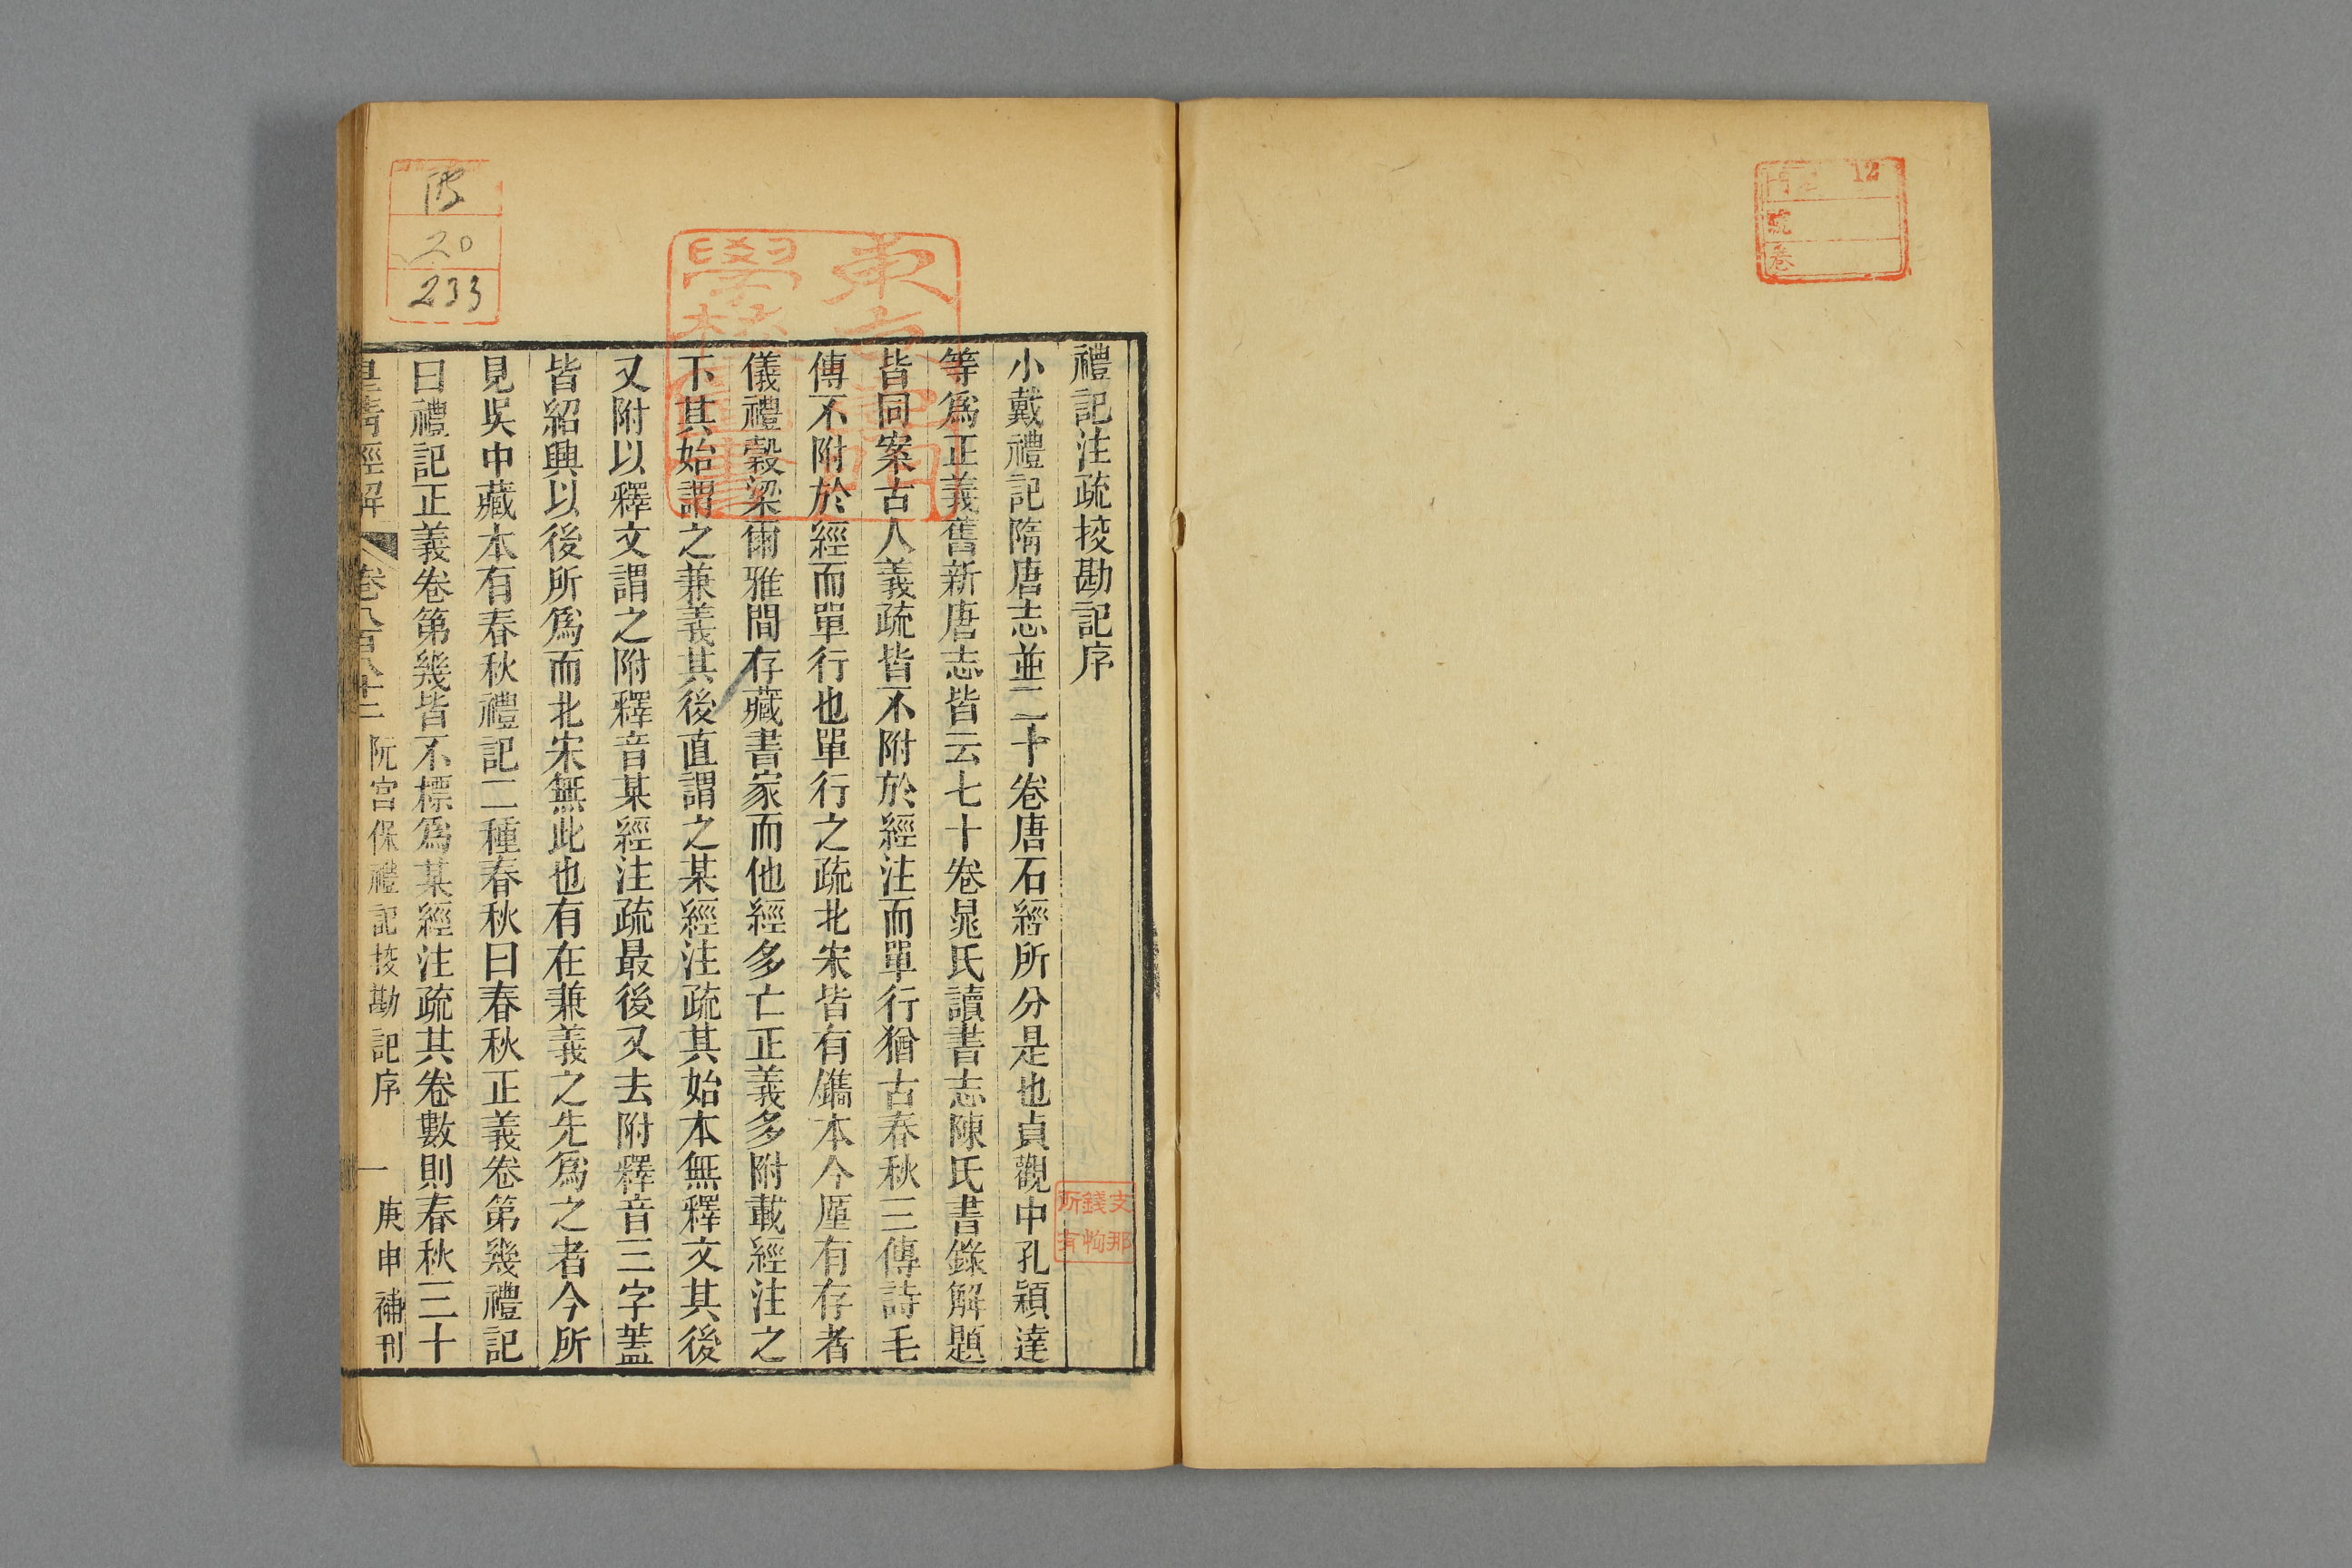 12
門
號
卷
禮記注疏挍勘記序
小戴禮記隋唐志並二十卷唐石經所分是也貞觀中孔穎達
等爲正義舊新唐志皆云七十卷晁氏讀書志陳氏書錄解題
皆同案古人義疏皆不附於經注而單行猶古春秋三傳詩毛
傳不附於經而單行也單行之疏北宋皆有鐫本今厪有存者
儀禮穀梁爾雅間存藏書家而他經多亡正義多附載經注之
下其始謂之兼義其後直謂之某經注疏其始本無釋文其後
又附以釋文謂之附釋音某經注疏最後又去附釋音三字蓋
皆紹興以後所爲而北宋無此也有在兼義之先爲之者今所
見吳中藏本有春秋禮記二種春秋曰春秋正義卷第幾禮記
曰禮記正義卷第幾皆不標爲某經注疏其卷數則春秋三十
皇淸經解 卷八百八十二 阮宮保禮記挍勘記序 一 庚申補刊
支那
錢恂
所有
東方
學校
圖書
B
20
233